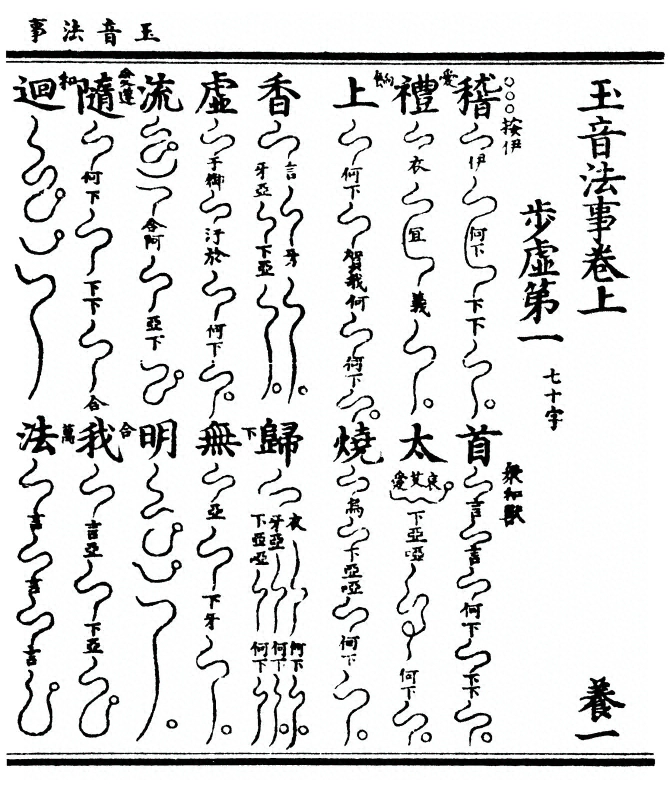 玉音法事
玉音法事卷上 養一
步虛第一 七十字
○○○ 伊 衆和
稽 伊 何下 下下 首 言 言 何下 下下
愛
禮 衣 宜 義 太 哀艾愛 下亞啞 何下
上 何下 賀我何 何下 燒 為 下亞啞 何下
香 言 牙 牙亞 下亞 歸 衣 牙亞 下亞啞 何下 何下 何下
下
虛 手御 汙於 何下 無 亞 下牙
流 合阿 亞下 明
合
隨 何下 下下 合 我 言亞 下亞
和 萬
迴 法 言 言 言